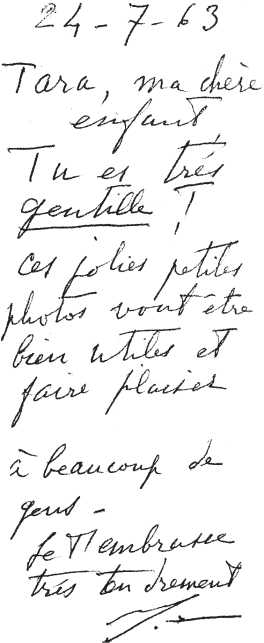 24-7-63
Tara, ma chère
enfant,
Tu es très
gentille !
ces jolies petites
photos vont être
bien utiles et
faire plaisir
à beaucoup de
gens -
Je T'embrasse
très tendrement